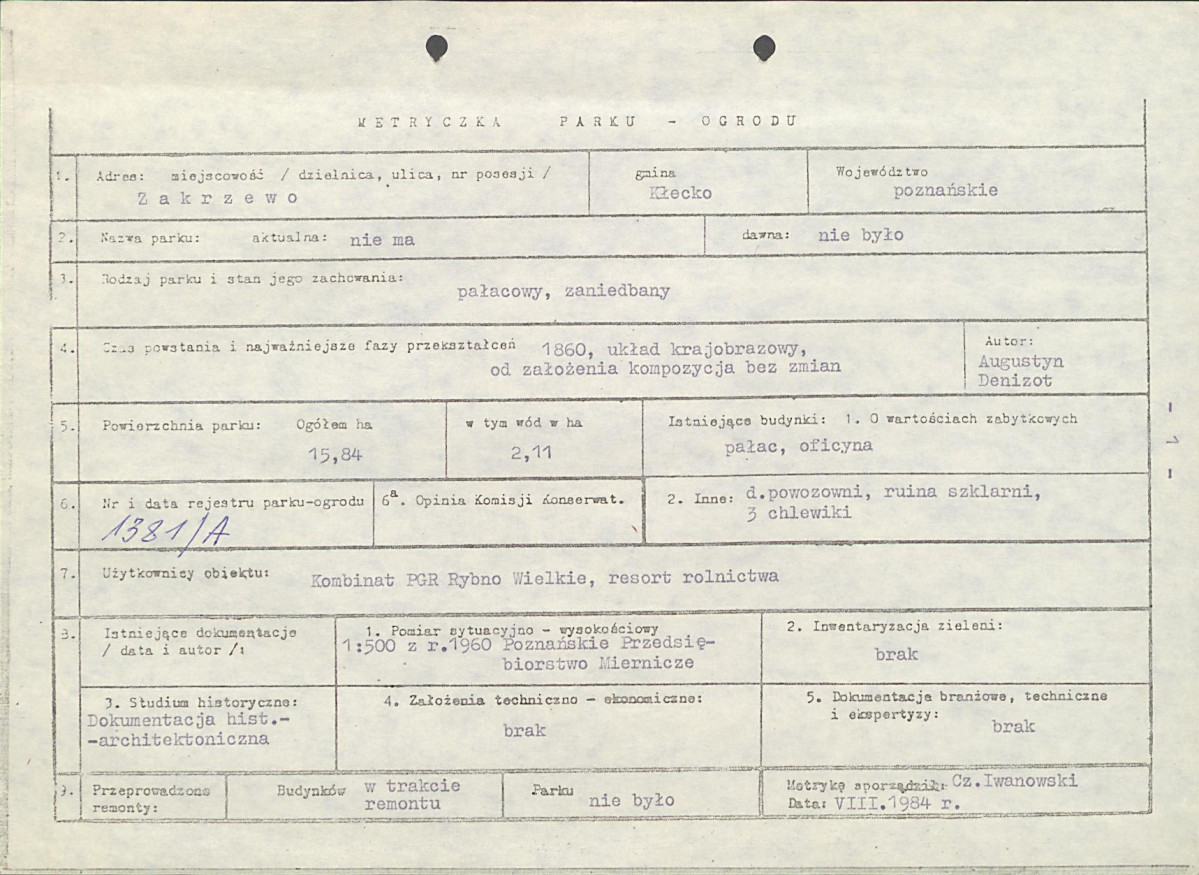 METRYCZKA PARKU - OGRODU
1. Adres: miejscowość / dzielnica, ulica, nr posesji /
Zakrzewo
gmina
Kłecko
Województwo
poznańskie
2. Nazwa parku: aktualna: nie ma
dawna: nie było
3. Rodzaj parku i stan jego zachowania:
pałacowy, zaniedbany
4. Czas powstania i najważniejsze fazy przekształceń 1860, układ krajobrazowy,
od założenia kompozycja bez zmian
Autor:
Augustyn
Denizot
5. Powierzchnia parku: Ogółem ha
15,84
w tym wód w ha
2,11
Istniejące budynki: 1. O wartościach zabytkowych
pałac, oficyna
6. Nr i data rejestru parku-ogrodu
1381/A
6a. Opinia Komisji Konserwat.
2. Inne: d.powozowni, ruina szklarni,
3 chlewiki
7. Użytkownicy obiektu: Kombinat PGR Rybno Wielkie, resort rolnictwa
8. Istniejące dokumentacje
/ data i autor /:
1. Pomiar sytuacyjno - wysokościowy
1:500 z r.1960 Poznańskie Przedsię-
biorstwo Miernicze
2. Inwentaryzacja zieleni:
brak
3. Studium historyczne:
Dokumentacja hist.-
-architektoniczna
4. Założenia techniczno - ekonomiczne:
brak
5. Dokumentacja branżowe, techniczne
i ekspertyzy:
brak
9. Przeprowadzone
remonty:
Budynków w trakcie
remontu
Parku
nie było
Metrykę sporządził: Cz.Iwanowski
Data: VIII.1984 r.
- 1 -